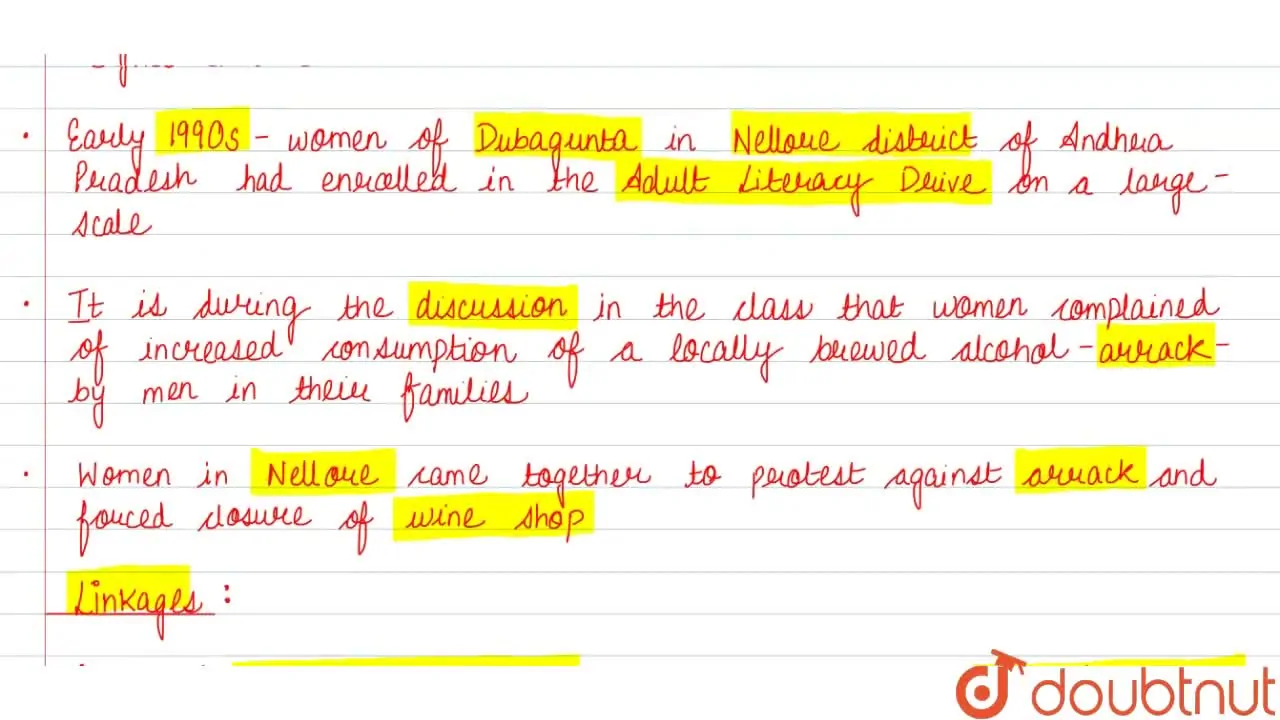 • Early 1990s - women of Dubagunta in Nellore district of Andhra
Pradesh had enrolled in the Adult Literacy Drive on a large-
scale
• It is during the discussion in the class that women complained
of increased consumption of a locally brewed alcohol - arrack -
by men in their families
• Women in Nellore came together to protest against arrack and
forced closure of wine shop
Linkages :
doubtnut